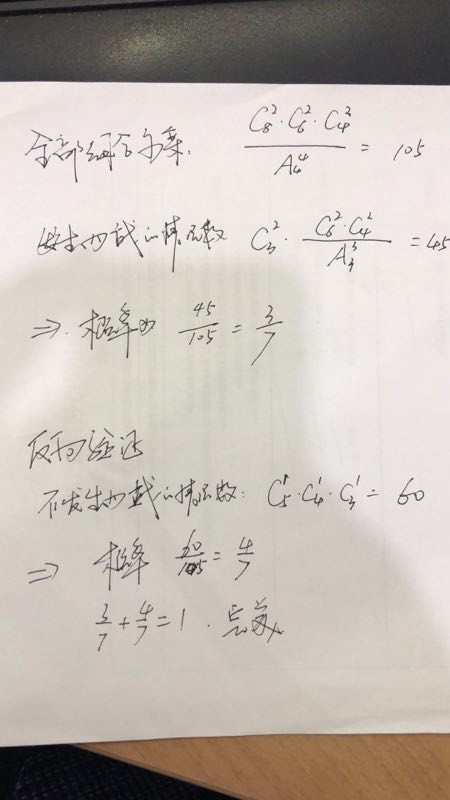 全部组合方案. C₈²·C₆²·C₄² / A₄⁴ = 105
发生内战的情况数 C₃²· C₆²·C₄² / A₃³ = 45
⇒. 概率为 45/105 = 3/7
反向验证
不发生内战的情况数: C₅¹·C₄¹·C₃¹ = 60
⇒ 概率 60/105 = 4/7
3/7 + 4/7 = 1. 完美